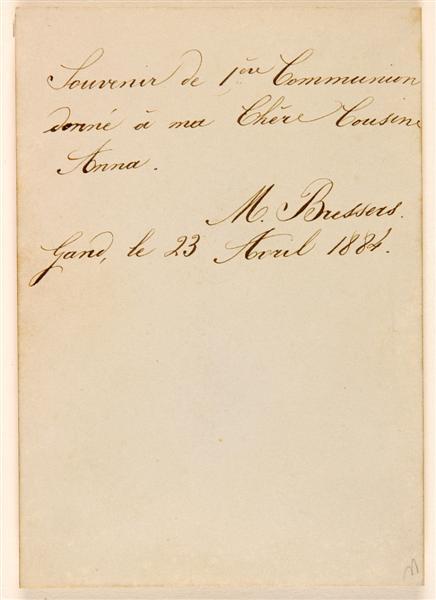 Souvenir de 1ère Communion
donné à ma Chère Cousine
Anna.
M. Bressers.
Gand, le 23 Avril 1884.